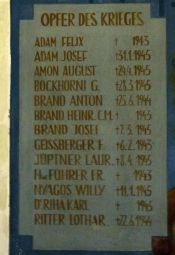 OPFER DES KRIEGES
ADAM FELIX † 1943
ADAM JOSEF † 31.1.1945
AMON AUGUST † 29.4.1945
BOCKHORNI G. † 21.3.1945
BRAND ANTON † 25.6.1944
BRAND HEINR. † 1945
BRAND JOSEF † 2.3.1945
GEISSBERGER F. † 6.2.1943
JÜPTNER LAUR. † 8.4.1945
FÜHRER FR. † 1943
NYAGOS WILLY † 11.1.1945
KARL † 1945
RITTER LOTHAR † 22.6.1944